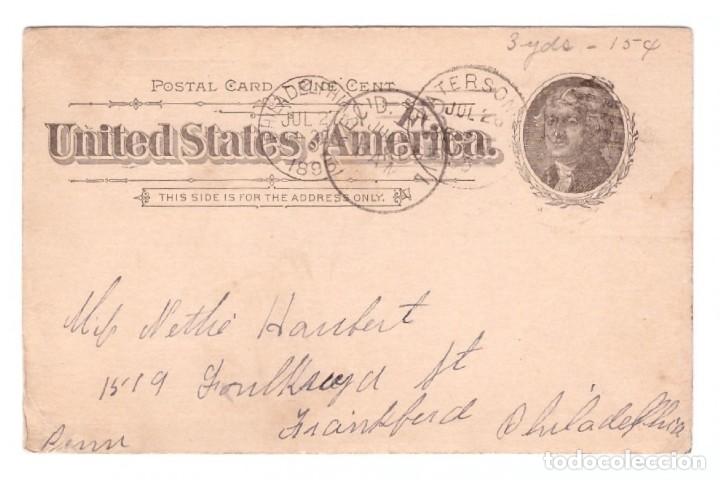 3 yds - 15¢
POSTAL CARD - ONE CENT.
United States of America.
THIS SIDE IS FOR THE ADDRESS ONLY.
PHILADELPHIA
JUL 2
189
TERSON
JUL 2
REC'D.
Miss Nettie Haubert
1519 Foulkrod St
Frankford Philadelphia
Penn
todocoleccion